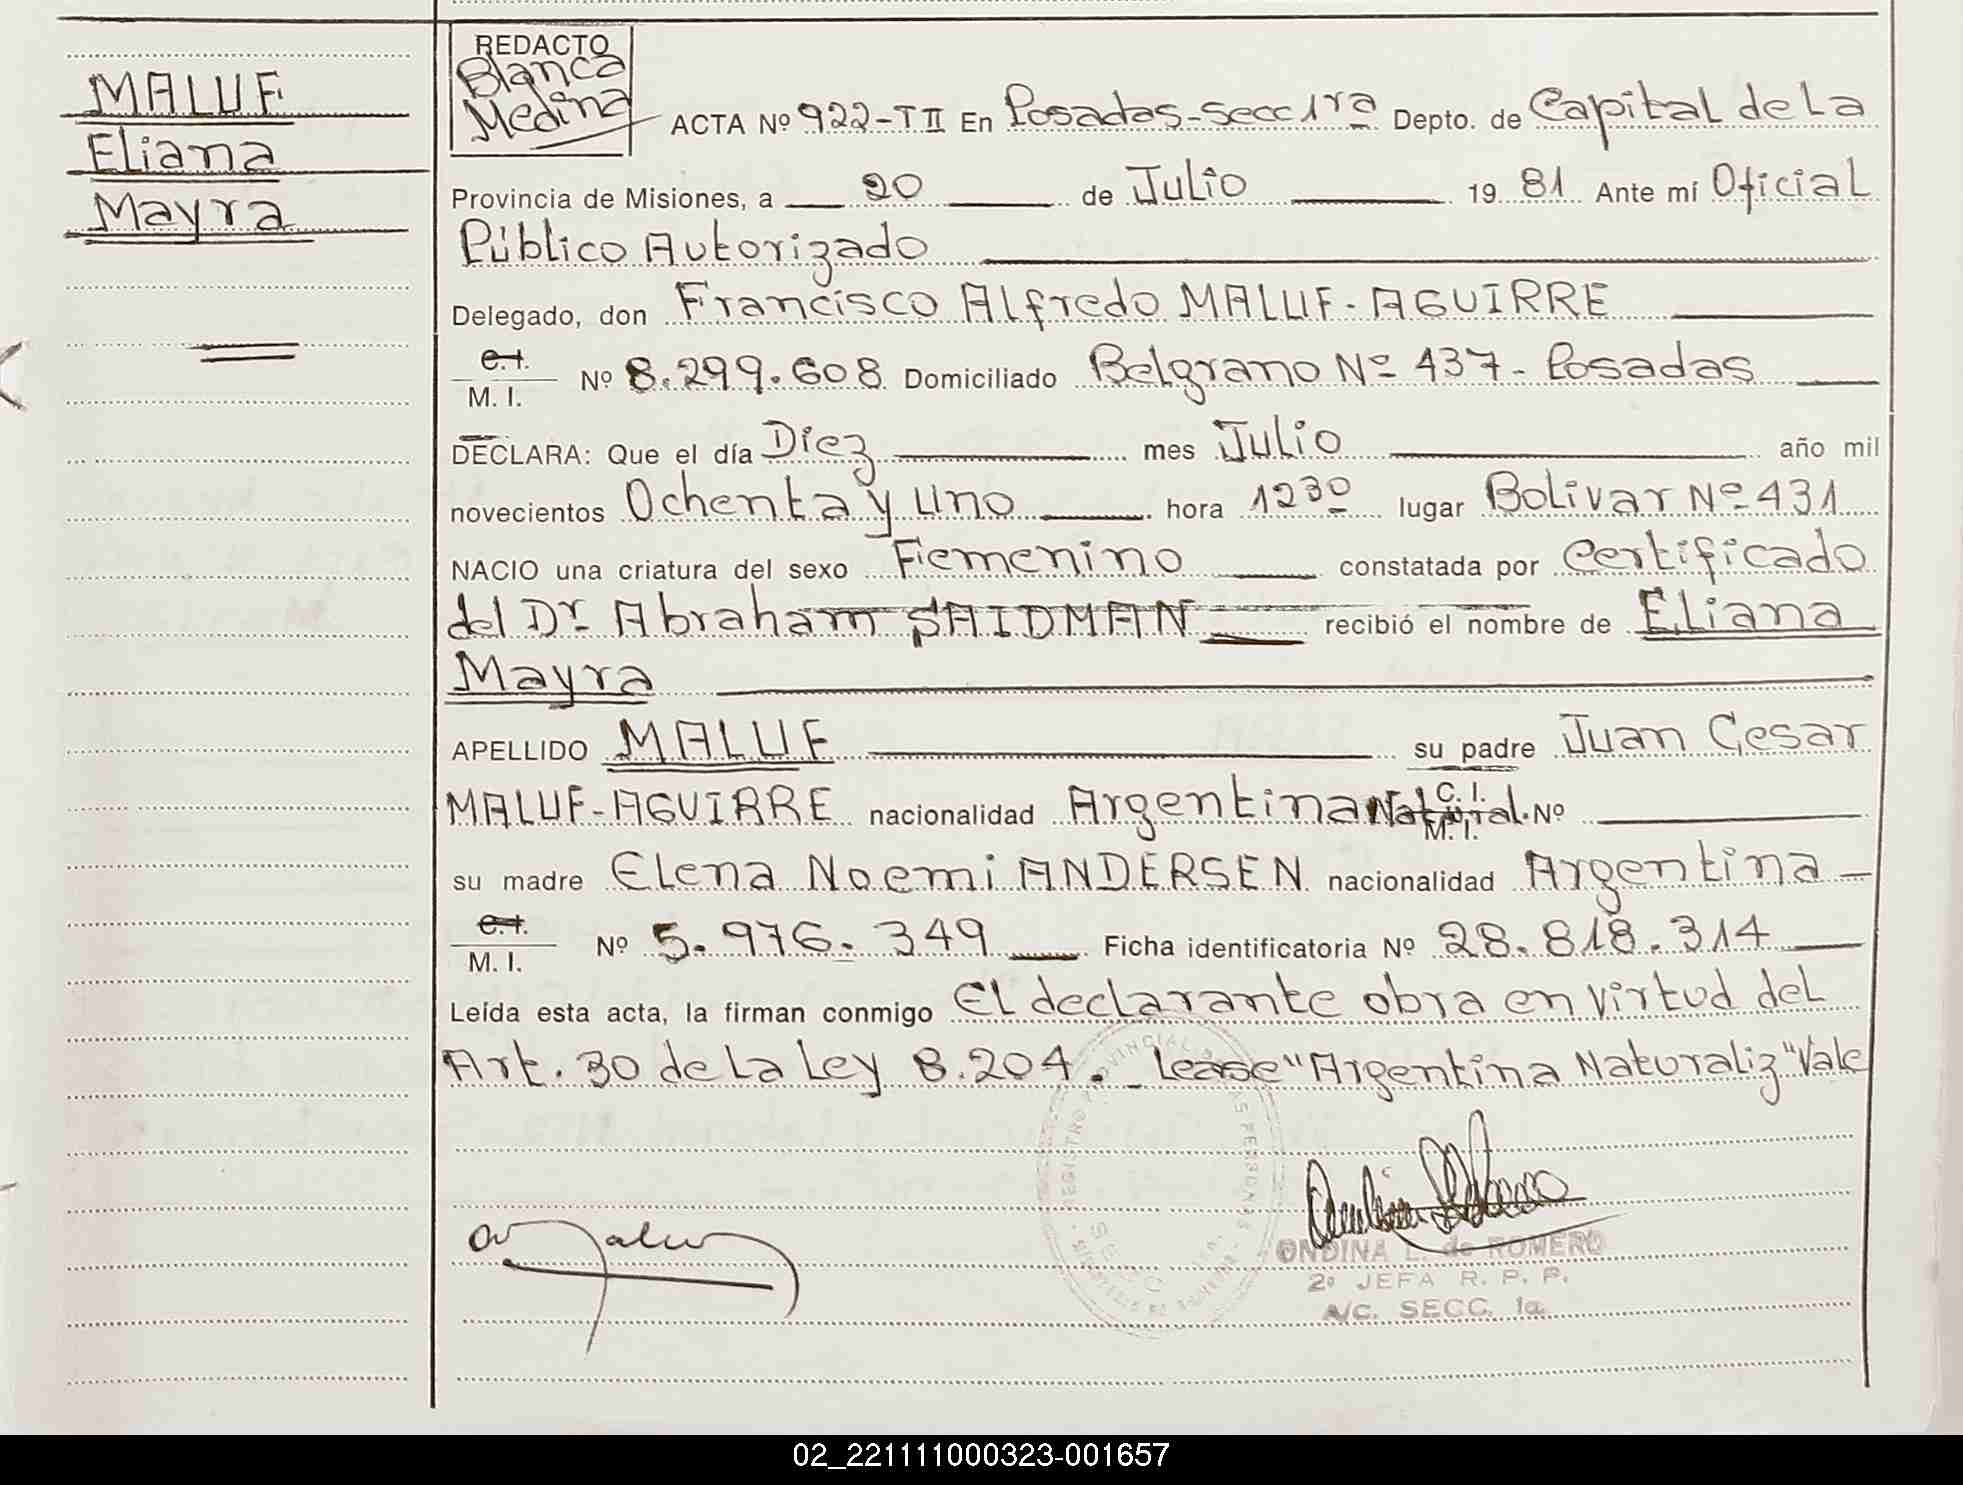 MALUF
Eliana
Mayra
REDACTO
Blanca
Medina
ACTA Nº 922-TII En Posadas-Secc 1ra Depto. de Capital de La
Provincia de Misiones, a 20 de Julio 19 81 Ante mí Oficial
Público Autorizado
Delegado, don Francisco Alfredo MALUF-AGUIRRE
C.I.
M. I. Nº 8.299.608 Domiciliado Belgrano Nº 437- Posadas
DECLARA: Que el día Diez mes Julio año mil
novecientos Ochenta y uno hora 12 30 lugar Bolivar Nº 431
NACIO una criatura del sexo Femenino constatada por Certificado
del Dr Abraham SAIDMAN recibió el nombre de Eliana
Mayra
APELLIDO MALUF su padre Juan Cesar
MALUF-AGUIRRE nacionalidad Argentina Natural C. I. M. I. Nº
su madre Elena Noemi ANDERSEN nacionalidad Argentina
C.I.
M. I. Nº 5.976.349 Ficha identificatoria Nº 28.818.314
Leída esta acta, la firman conmigo El declarante obra en virtud del
Art. 30 de La Ley 8.204. Lease "Argentina Naturaliz" Vale
REGISTRO PROVINCIAL DE LAS PERSONAS
SECC. 1ra.
ONDINA L. de ROMERO
2º JEFA R. P. P.
A/C. SECC. 1a
02_221111000323-001657